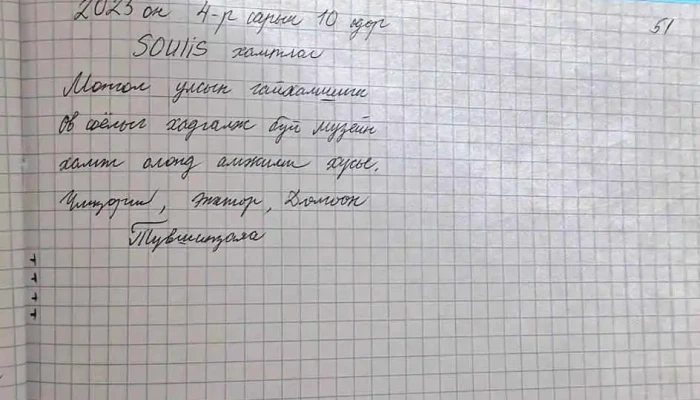 2023 он 4-р сарын 10 өдөр
51
SOULiS хамтлаг
Монгол улсын гайхамшигт
өв соёлыг хадгалж буй музейн
хамт олонд амжилт хүсье.
Дөлгөөн
Түвшинзаяа